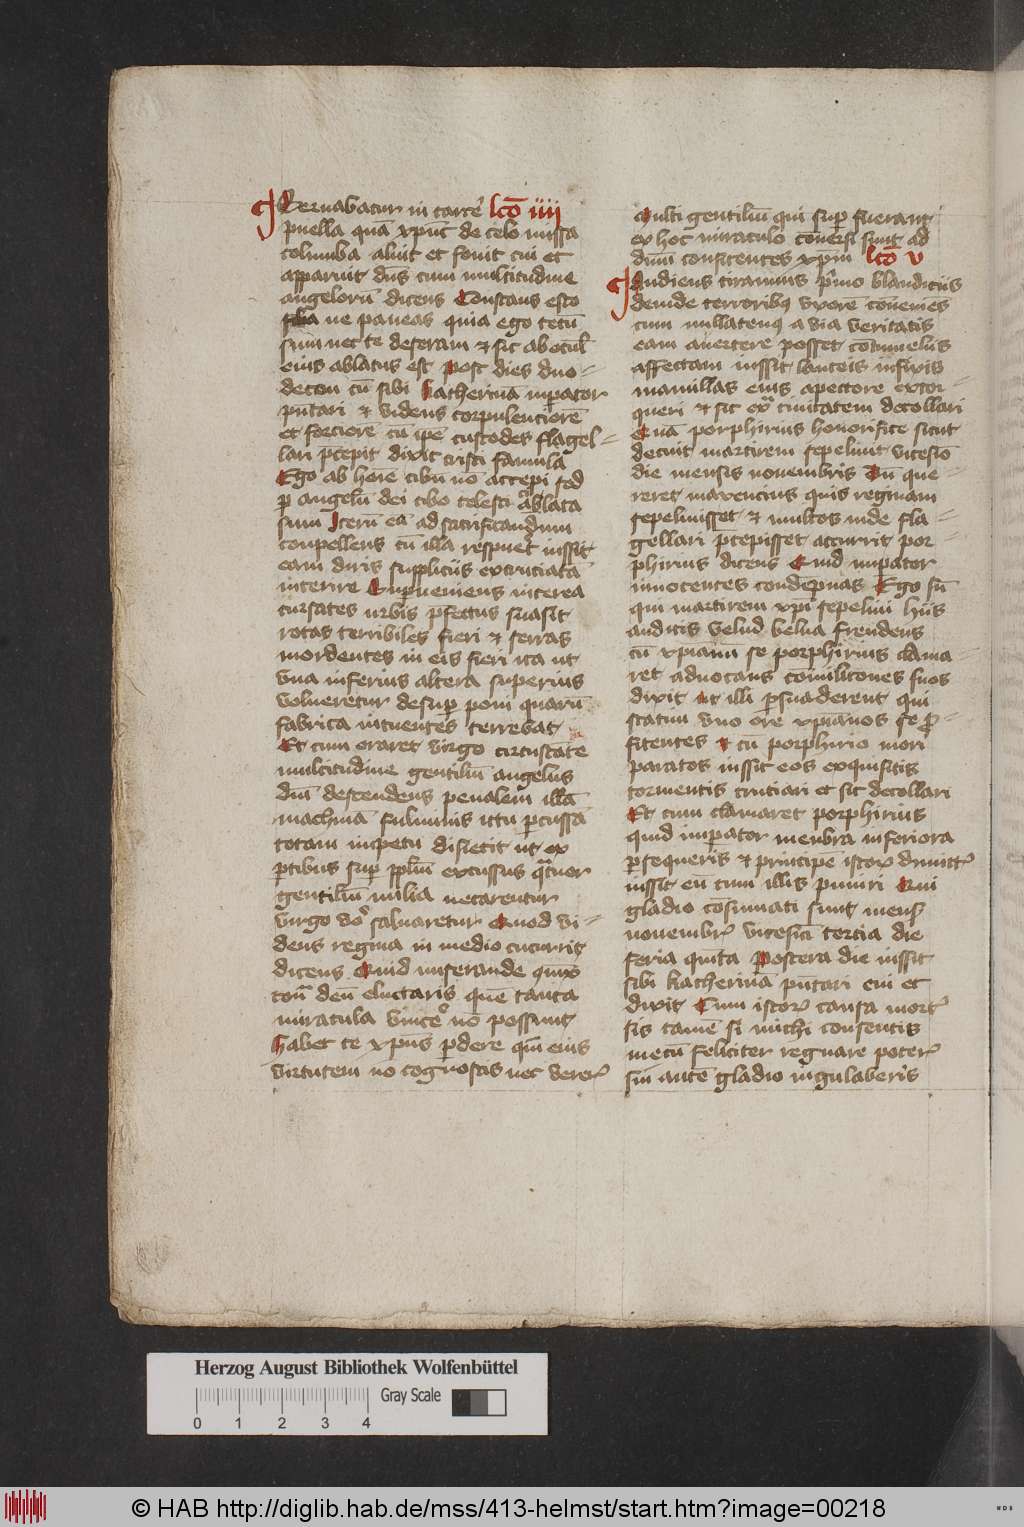 Seruabatur in carcē lcō iiii
puella quā xpūc de celo missa
columba aluit et fouit cui et
apparuit dn̄s cum multitudine
angelorū dicens Constans esto
filia ne paueas quia ego tecū
sum nec te deseram et sic ab ocul̄
eius ablatus est Post dies duo-
decim cū sibi katherinā inperator
pn̄tari et videns corpulenciorē
et forciorē cū ip̄e custodes flagel-
lari p̄cepit dixit cristi famula
Ego ab hoīe cibū nō accepi sed
p angelū dei cibo celesti ablata
sum Iterū eā ad sacrificandum
conpellens cū illa respuer̄ iussit
eam diris suppliciis excruciatā
interire Superueniens interea
cursates urbis p̄fectus suasit
rotas terribiles fieri et serras
mordentes in eis fieri ita ut
vna inferius altera superius
volueretur desup poni quarū
fabrica intuentes terrebat
Et cum oraret virgo circūstāte
multitudine gentiliū angelus
dn̄i descendens penalem illā
machinā fulminis ictu p̄cussā
totam inpetu disiecit ut ex
ptibus sup pplm̄ excussus qtuor
gentiliū milia necarentur
virgo vo saluaretur Quod vi-
dens regina in medio cucurrit
dicens Quid miserande quius
contra deū eluctaris quē tanta
miracula vince nō possunt
Habet te xpūs pdere qui eius
virtutem nō cognoscis nec verer
Multi gentiliū qui sup fuerant
ex hoc miraculo conuersi sunt ad
dn̄m confitentes xpm̄ lcō v
Audiens tirannus pimo blandiciis
deinde terroribus vxorē cōueniēs
cum nullatenus a via veritatis
eam auertere posset contumeliis
affectam iussit lanceis infixis
mamillas eius a pectore extor-
queri et sic extra ciuitatem decollari
Quā porphirius honorifice sicut
decuit martirem sepeliuit vicesiō
die mensis nouembris Dū que-
reret maxencius quis reginam
sepeliuisset et multos inde fla-
gellari p̄cepisset accurrit por-
phirius dicens Quid inperator
innocentes condempnas Ego sū
qui martirem xpi sepeliui hiis
auditis velud belua frendens
cū xpianū se porphirius clama-
ret aduocans cōmilitones suos
dixit ut illi psuaderent qui
statim vno ore xpianos se pro-
fitentes et cū porphirio mori
paratos iussit eos exquisitis
tormentis cruciari et sic decollari
Et cum clamaret porphirius
quid inperator menbra inferiora
psequeris et principē istor dimittis
iussit eū cum illis puniri Qui
gladio cōsumati sunt mens
nouembr vicesiā tercia die
feria quinta Postera die iussit
sibi katherinā pn̄tari cui et
dixit Cum istor causa mortis
sis tamē si michi consentis
mecū feliciter regnare poter
sin autē gladio iugulaberis
Herzog August Bibliothek Wolfenbüttel
0 1 2 3 4 Gray Scale
© HAB http://diglib.hab.de/mss/413-helmst/start.htm?image=00218
WDB